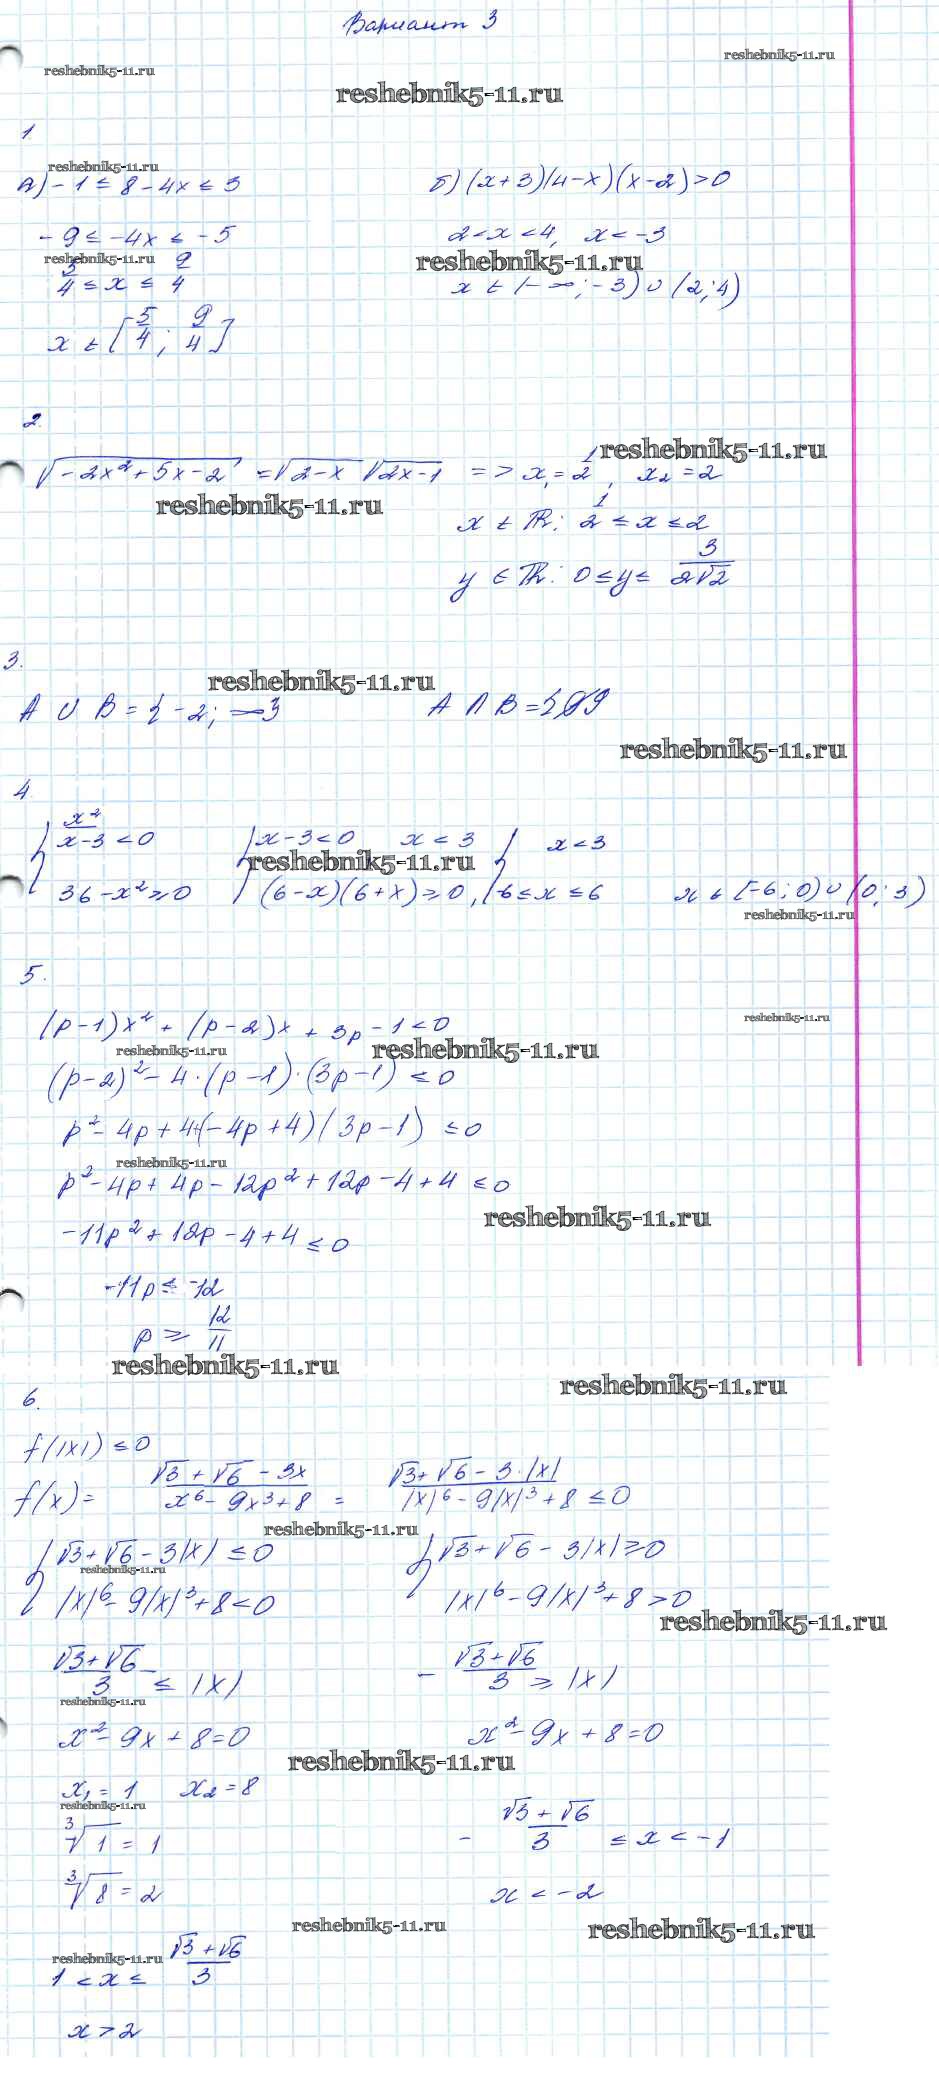 Вариант 3
reshebnik5-11.ru
reshebnik5-11.ru
reshebnik5-11.ru
1
reshebnik5-11.ru
а) -1 ≤ 8 - 4x ≤ 3
б) (x+3)(4-x)(x-2) > 0
-9 ≤ -4x ≤ -5
2 < x < 4, x < -3
reshebnik5-11.ru
reshebnik5-11.ru
5/4 ≤ x ≤ 9/4
x ∈ (-∞; -3) ∪ (2; 4)
x ∈ [5/4; 9/4]
2.
√(-2x² + 5x - 2) = √(2-x) √(2x-1) => x₁ = 1/2, x₂ = 2
reshebnik5-11.ru
reshebnik5-11.ru
x ∈ R: 1/2 ≤ x ≤ 2
y ∈ R: 0 ≤ y ≤ 3/(2√2)
3.
reshebnik5-11.ru
A ∪ B = {-2; ∞}
A ∩ B =
reshebnik5-11.ru
4
{ x²/(x-3) < 0 { x-3 < 0 x < 3 { x < 3
reshebnik5-11.ru
36 - x² ≥ 0 (6-x)(6+x) ≥ 0, -6 ≤ x ≤ 6 x ∈ [-6; 0) ∪ (0; 3)
reshebnik5-11.ru
5.
(p-1)x² + (p-2)x + 3p - 1 < 0
reshebnik5-11.ru
reshebnik5-11.ru
reshebnik5-11.ru
(p-2)² - 4·(p-1)·(3p-1) ≤ 0
p² - 4p + 4 + (-4p+4)(3p-1) ≤ 0
reshebnik5-11.ru
p² - 4p + 4p - 12p² + 12p - 4 + 4 ≤ 0
reshebnik5-11.ru
-11p² + 12p - 4 + 4 ≤ 0
-11p ≤ -12
p ≥ 12/11
reshebnik5-11.ru
reshebnik5-11.ru
6.
f(|x|) ≤ 0
f(x) = (√3 + √6 - 3x)/(x⁶ - 9x³ + 8) = (√3 + √6 - 3·|x|)/(|x|⁶ - 9|x|³ + 8) ≤ 0
reshebnik5-11.ru
{ √3 + √6 - 3|x| ≤ 0 { √3 + √6 - 3|x| ≥ 0
reshebnik5-11.ru
|x|⁶ - 9|x|³ + 8 < 0 |x|⁶ - 9|x|³ + 8 > 0
reshebnik5-11.ru
(√3+√6)/3 ≤ |x| - (√3+√6)/3 ≥ |x|
reshebnik5-11.ru
x² - 9x + 8 = 0 x² - 9x + 8 = 0
reshebnik5-11.ru
x₁ = 1 x₂ = 8
reshebnik5-11.ru
∛1 = 1 - (√3+√6)/3 ≤ x < -1
∛8 = 2 x < -2
reshebnik5-11.ru
reshebnik5-11.ru
reshebnik5-11.ru
1 < x ≤ (√3+√6)/3
x > 2